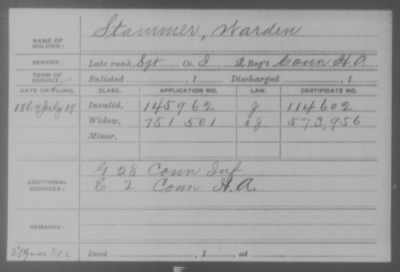 Stammer, Warden
NAME OF SOLDIER:
SERVICE: Late rank, Sgt Co. I, 2 Reg't Conn H A
TERM OF SERVICE: Enlisted , 1 Discharged , 1
DATE OF FILING. CLASS. APPLICATION NO. LAW. CERTIFICATE NO.
1869 July 19 Invalid, 145962 114602
Widow, 751 501 573,956
Minor,
G 28 Conn Inf
ADDITIONAL SERVICES: E 2 Conn H.A.
REMARKS:
Died , 1 , at